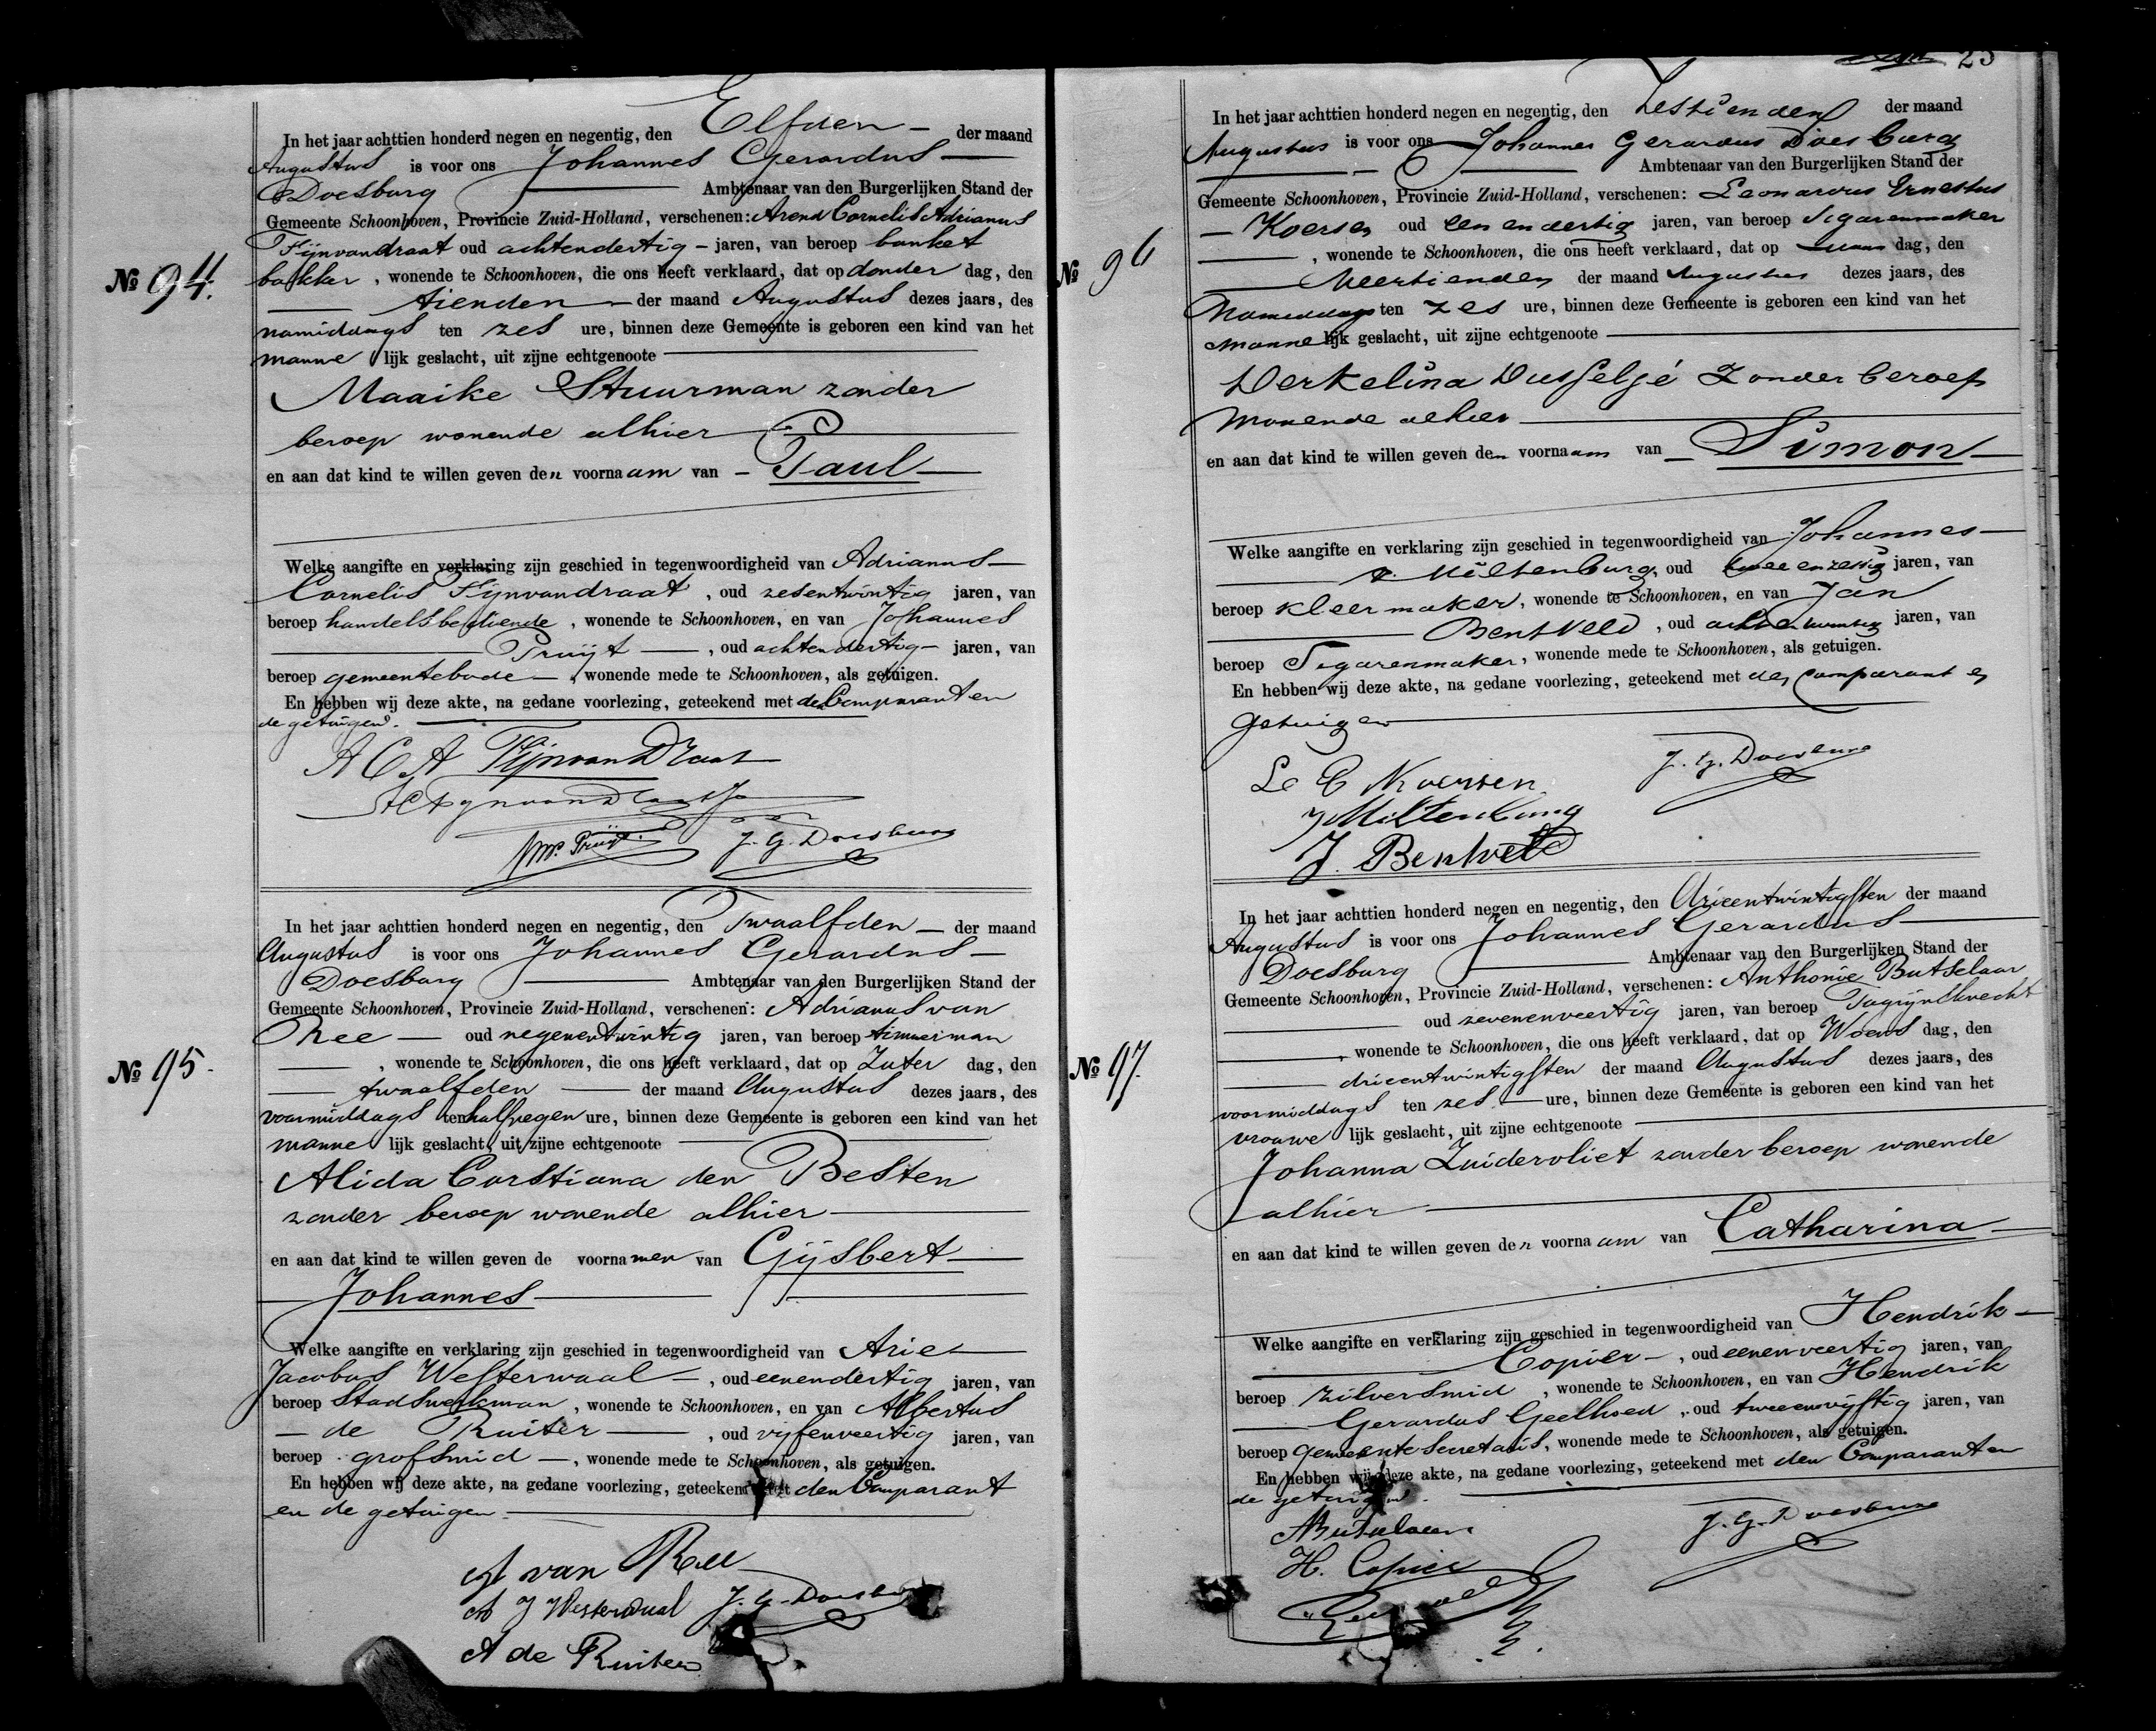 In het jaar achttien honderd negen en negentig, den Elfden der maand
Augustus is voor ons Johannes Gerardus
Doesburg Ambtenaar van den Burgerlijken Stand der
Gemeente Schoonhoven, Provincie Zuid-Holland, verschenen: Arend Cornelis Adrianus
Fijnvandraat oud achtendertig jaren, van beroep banket
No 94. bakker, wonende te Schoonhoven, die ons heeft verklaard, dat op donder dag, den
tienden der maand Augustus dezes jaars, des
namiddags ten zes ure, binnen deze Gemeente is geboren een kind van het
manne lijk geslacht, uit zijne echtgenoote
Maaike Stuurman zonder
beroep wonende alhier
en aan dat kind te willen geven den voornaam van Paul
Welke aangifte en verklaring zijn geschied in tegenwoordigheid van Adrianus
Cornelis Fijnvandraat, oud zesentwintig jaren, van
beroep handelsbediende, wonende te Schoonhoven, en van Johannes
Pruijt, oud achtendertig jaren, van
beroep gemeentebode, wonende mede te Schoonhoven, als getuigen.
En hebben wij deze akte, na gedane voorlezing, geteekend met den Comparant en
de getuigen.
A C A Fijnvandraat
J. G. Doesburg
In het jaar achttien honderd negen en negentig, den Twaalfden der maand
Augustus is voor ons Johannes Gerardus
Doesburg Ambtenaar van den Burgerlijken Stand der
Gemeente Schoonhoven, Provincie Zuid-Holland, verschenen: Adrianus van
Ree oud negenentwintig jaren, van beroep timmerman
No 95. , wonende te Schoonhoven, die ons heeft verklaard, dat op Zater dag, den
twaalfden der maand Augustus dezes jaars, des
voormiddags ten half negen ure, binnen deze Gemeente is geboren een kind van het
manne lijk geslacht, uit zijne echtgenoote
Alida Corstiana den Besten
zonder beroep wonende alhier
en aan dat kind te willen geven de voornamen van Gijsbert
Johannes
Welke aangifte en verklaring zijn geschied in tegenwoordigheid van Arie
Jacobus Westerwaal, oud eenendertig jaren, van
beroep Stadswerkman, wonende te Schoonhoven, en van Albertus
de Ruiter, oud vijfenveertig jaren, van
beroep grofsmid, wonende mede te Schoonhoven, als getuigen.
En hebben wij deze akte, na gedane voorlezing, geteekend met den Comparant
en de getuigen.
A van Ree
A J Westerwaal J. G. Doesburg
A de Ruiter
23
In het jaar achttien honderd negen en negentig, den Zestienden der maand
Augustus is voor ons Johannes Gerardus Doesburg
Ambtenaar van den Burgerlijken Stand der
Gemeente Schoonhoven, Provincie Zuid-Holland, verschenen: Leonardus Ernestus
Koersen oud een en dertig jaren, van beroep Sigarenmaker
No 96 , wonende te Schoonhoven, die ons heeft verklaard, dat op maan dag, den
Veertienden der maand Augustus dezes jaars, des
Namiddags ten zes ure, binnen deze Gemeente is geboren een kind van het
manne lijk geslacht, uit zijne echtgenoote
Derkelina Dusseljé Zonder beroep
Wonende alhier
en aan dat kind te willen geven den voornaam van Simon
Welke aangifte en verklaring zijn geschied in tegenwoordigheid van Johannes
v. Miltenburg, oud twee en zestig jaren, van
beroep kleermaker, wonende te Schoonhoven, en van Jan
Bentveld, oud achtentwintig jaren, van
beroep Sigarenmaker, wonende mede te Schoonhoven, als getuigen.
En hebben wij deze akte, na gedane voorlezing, geteekend met den Comparant en
Getuigen
L E Koersen J. G. Doesburg
J Miltenburg
J. Bentveld
In het jaar achttien honderd negen en negentig, den drieentwintigsten der maand
Augustus is voor ons Johannes Gerardus
Doesburg Ambtenaar van den Burgerlijken Stand der
Gemeente Schoonhoven, Provincie Zuid-Holland, verschenen: Anthonie Butselaar
oud zevenenveertig jaren, van beroep Tagrijnsknecht
No 97. , wonende te Schoonhoven, die ons heeft verklaard, dat op Woens dag, den
drieentwintigsten der maand Augustus dezes jaars, des
voormiddags ten zes ure, binnen deze Gemeente is geboren een kind van het
vrouwe lijk geslacht, uit zijne echtgenoote
Johanna Zuidervliet zonder beroep wonende
alhier
en aan dat kind te willen geven den voornaam van Catharina
Welke aangifte en verklaring zijn geschied in tegenwoordigheid van Hendrik
Copier, oud eenenveertig jaren, van
beroep zilversmid, wonende te Schoonhoven, en van Hendrik
Gerardus Geelhoed, oud tweeenvijftig jaren, van
beroep gemeentesecretaris, wonende mede te Schoonhoven, als getuigen.
En hebben wij deze akte, na gedane voorlezing, geteekend met den Comparant en
de getuigen.
AButselaar J. G. Doesburg
H. Copier
Geelhoed